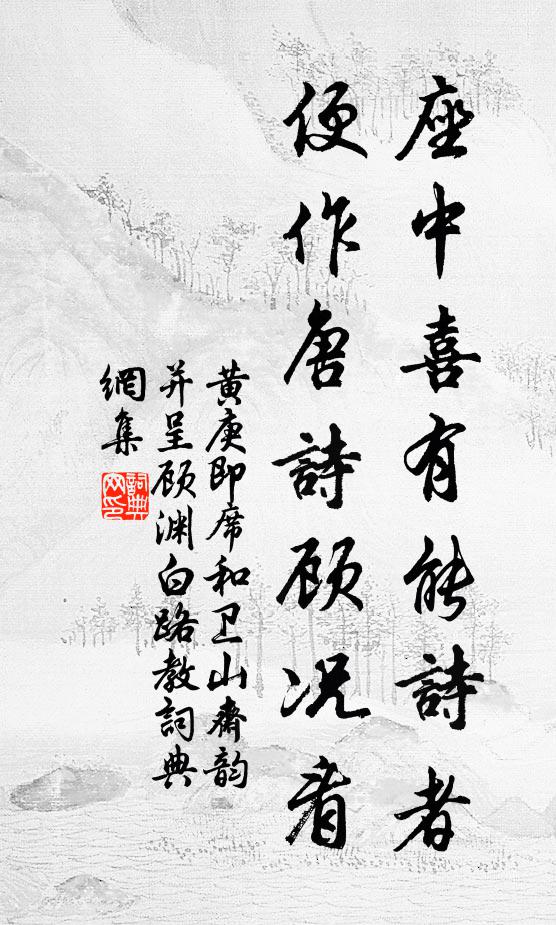 座中喜有能詩者
便作唐詩顾况看
黄庚即席和卫山斋韵
并呈顾渊白路教詞典
網集
詞典网印